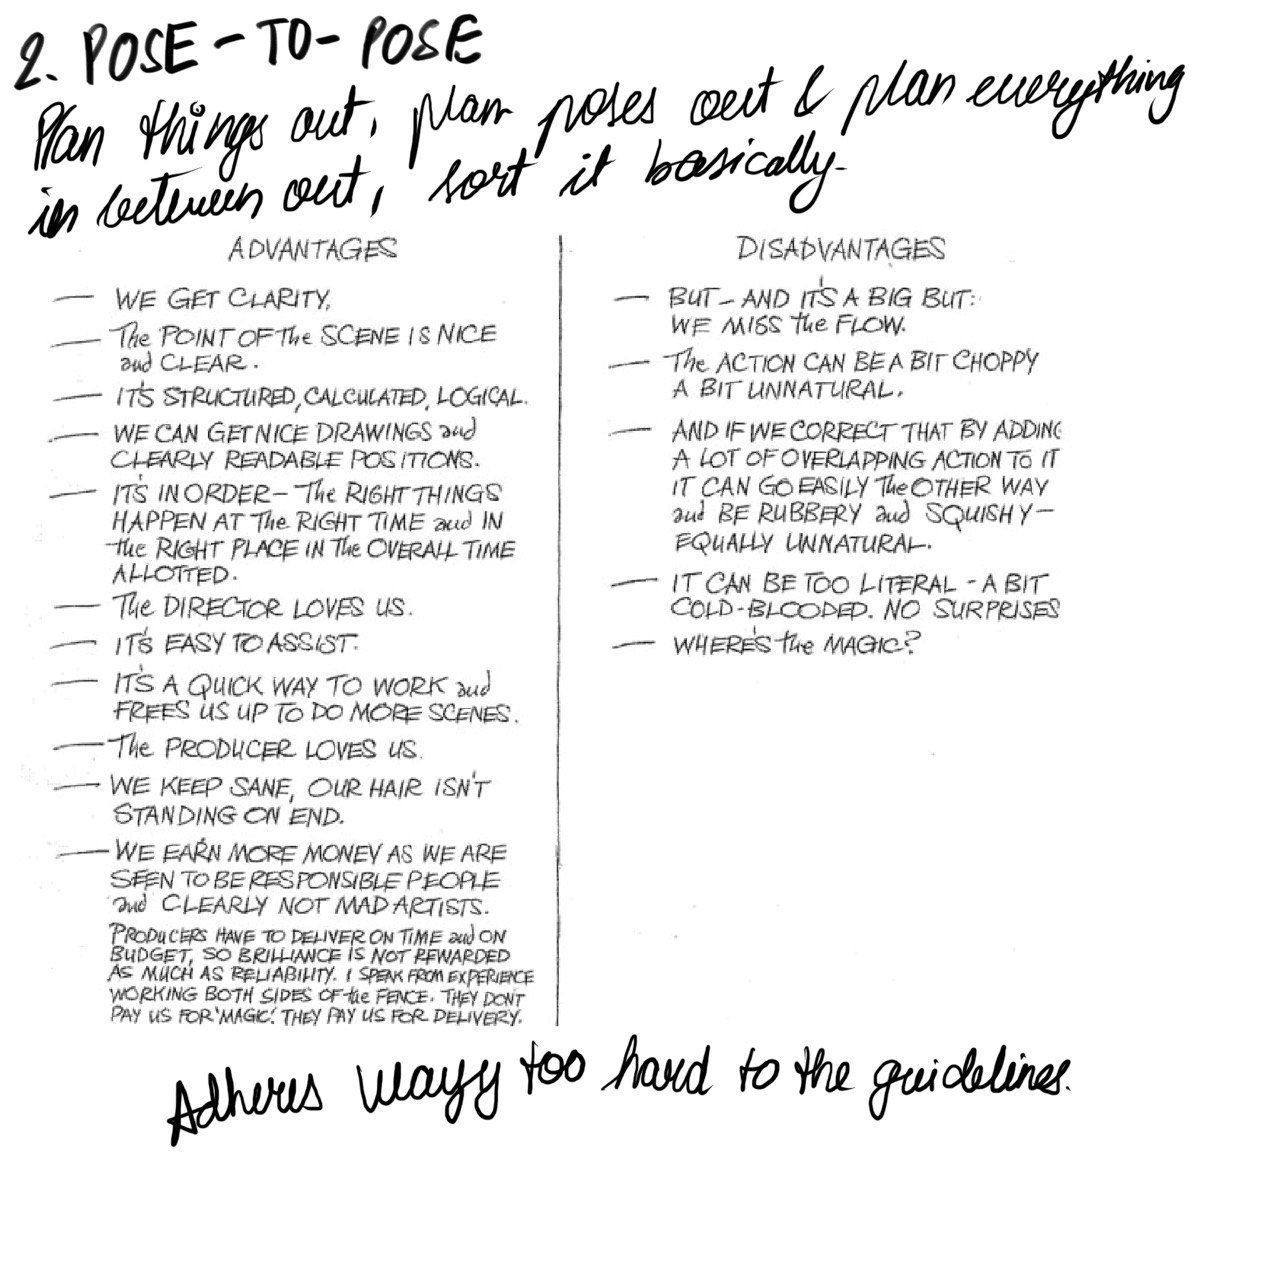 2. POSE-TO-POSE
Plan things out, plan poses out & plan everything
in between out, sort it basically.
ADVANTAGES
— WE GET CLARITY.
— The POINT OF The SCENE IS NICE
and CLEAR.
— IT'S STRUCTURED, CALCULATED, LOGICAL.
— WE CAN GET NICE DRAWINGS and
CLEARLY READABLE POSITIONS.
— IT'S IN ORDER – The RIGHT THINGS
HAPPEN AT The RIGHT TIME and IN
the RIGHT PLACE IN The OVERALL TIME
ALLOTTED.
— The DIRECTOR LOVES US.
— IT'S EASY TO ASSIST.
— IT'S A QUICK WAY TO WORK and
FREES US UP TO DO MORE SCENES.
— The PRODUCER LOVES US.
— WE KEEP SANE, OUR HAIR ISN'T
STANDING ON END.
— WE EARN MORE MONEY AS WE ARE
SEEN TO BE RESPONSIBLE PEOPLE
and CLEARLY NOT MAD ARTISTS.
PRODUCERS HAVE TO DELIVER ON TIME and ON
BUDGET, SO BRILLIANCE IS NOT REWARDED
AS MUCH AS RELIABILITY. I SPEAK FROM EXPERIENCE
WORKING BOTH SIDES OF the FENCE. THEY DON'T
PAY US FOR 'MAGIC'. THEY PAY US FOR DELIVERY.
DISADVANTAGES
— BUT – AND IT'S A BIG BUT:
WE MISS the FLOW.
— The ACTION CAN BE A BIT CHOPPY
A BIT UNNATURAL.
— AND IF WE CORRECT THAT BY ADDING
A LOT OF OVERLAPPING ACTION TO IT
IT CAN GO EASILY The OTHER WAY
and BE RUBBERY and SQUISHY –
EQUALLY UNNATURAL.
— IT CAN BE TOO LITERAL - A BIT
COLD-BLOODED. NO SURPRISES
— WHERE'S the MAGIC?
Adheres wayy too hard to the guidelines.